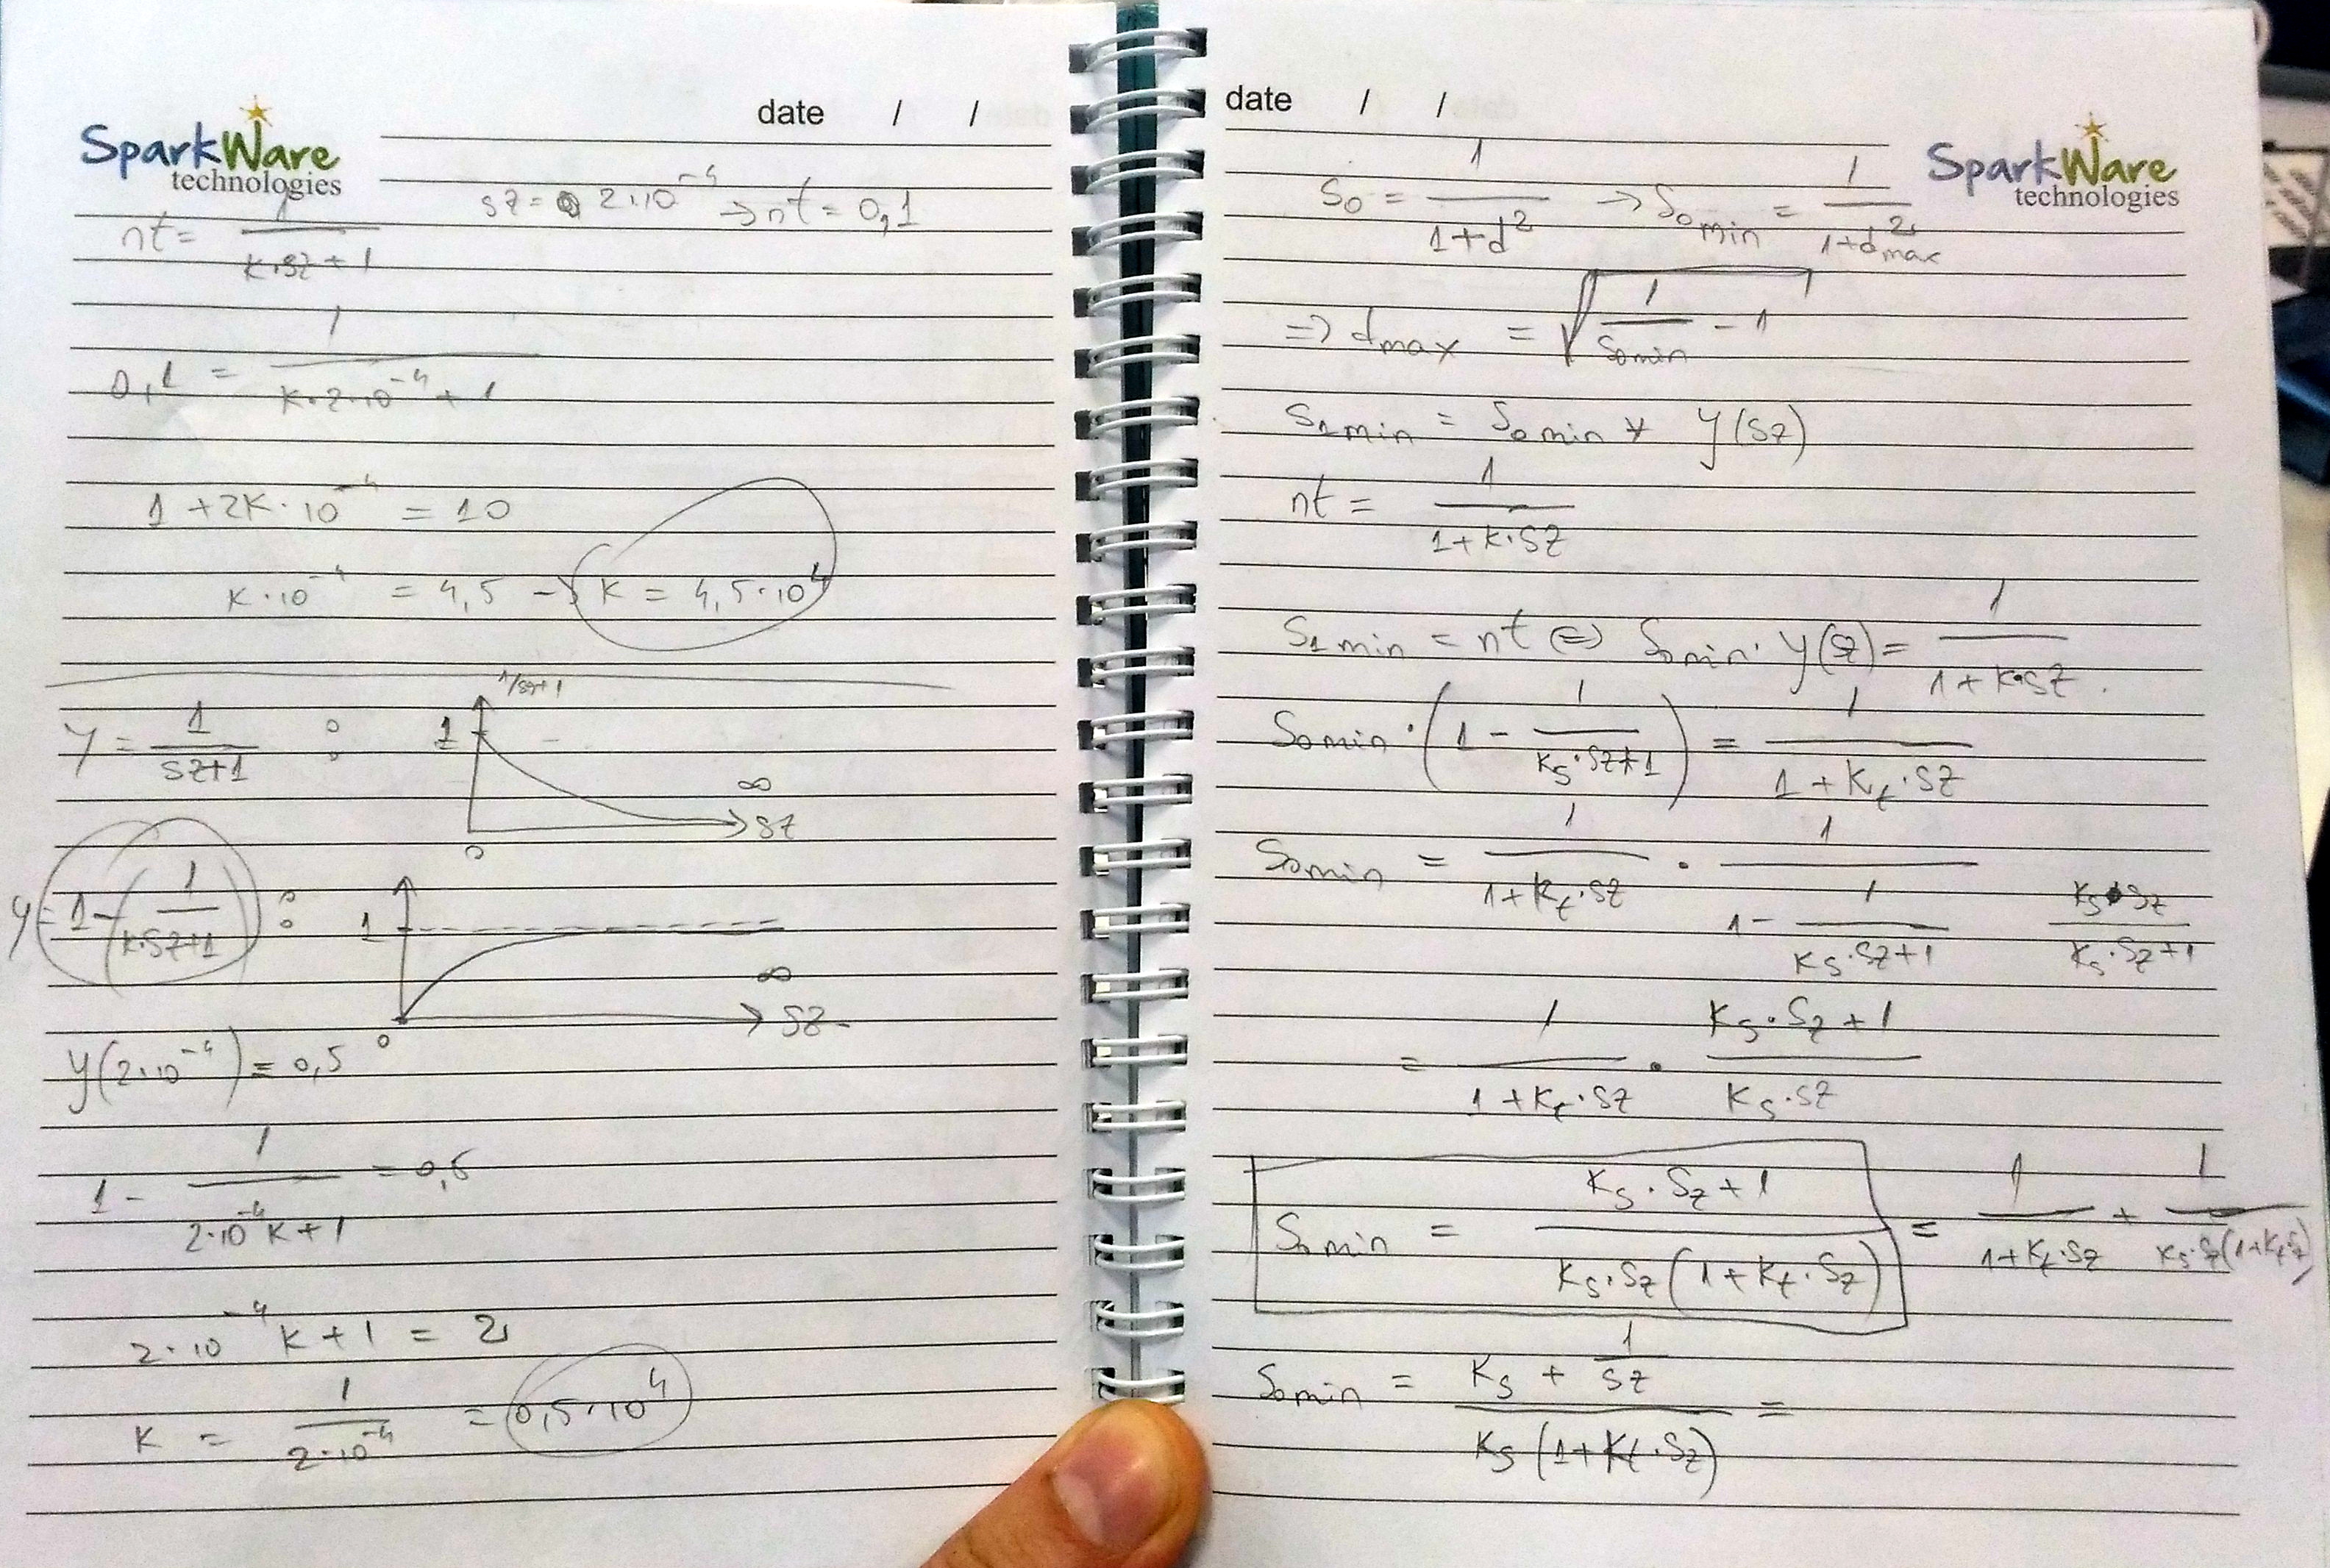 date / /
SparkWare
technologies
sz = 2·10^-4 → nt = 0,1
nt = 1/(k·sz+1)
0,1 = 1/(k·2·10^-4 + 1)
1 + 2k·10^-4 = 10
k·10^-4 = 4,5 → k = 4,5·10^4
y = 1/(sz+1) :
1/sz+1
1
∞
sz
0
y = 1 - (1/(k·sz+1)) :
1
∞
sz
0
y(2·10^-4) = 0,5
1 - 1/(2·10^-4 k + 1) = 0,5
2·10^-4 k + 1 = 2
k = 1/(2·10^-4) = 0,5·10^4
date / /
SparkWare
technologies
S0 = 1/(1+d^2) → S0min = 1/(1+d^2max)
=> dmax = √(1/S0min - 1)
S1min = S0min * y(sz)
nt = 1/(1+k·sz)
S1min = nt <=> S0min · y(sz) = 1/(1+k·sz)
S0min · (1 - 1/(ks·sz+1)) = 1/(1+kt·sz)
S0min = 1/(1+kt·sz) · 1/(1 - 1/(ks·sz+1)) ks·sz/(ks·sz+1)
= 1/(1+kt·sz) · (ks·sz+1)/(ks·sz)
S0min = (ks·sz+1)/(ks·sz(1+kt·sz)) = 1/(1+kt·sz) + 1/(ks·sz(1+kt·sz))
S0min = (ks + 1/sz)/(ks(1+kt·sz)) =